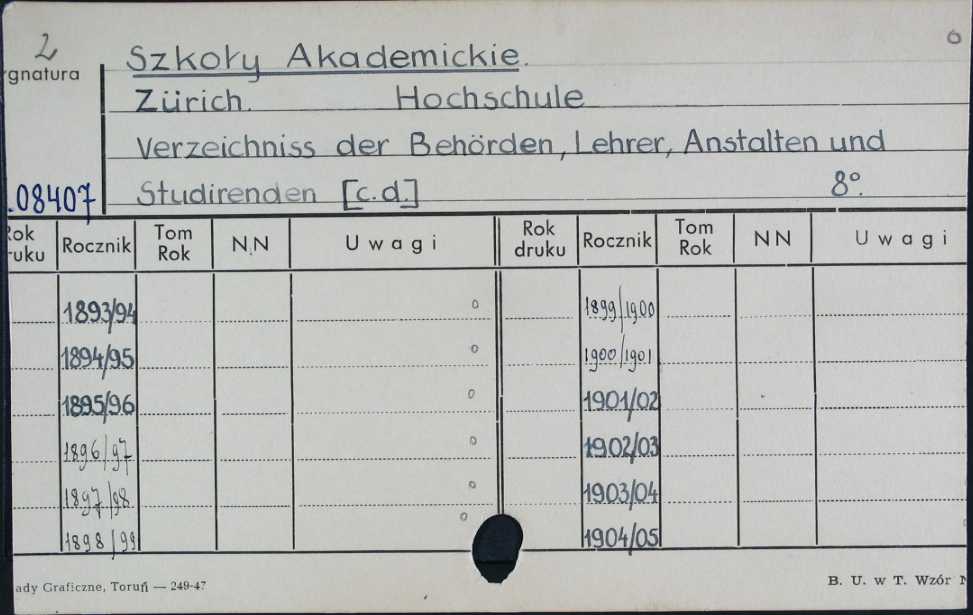 2
gnatura
Szkoły Akademickie.
Zürich. Hochschule
Verzeichniss der Behörden, Lehrer, Anstalten und
Studirenden [c.d.] 8°.
08407
Rok druku Rocznik Tom Rok NN Uwagi Rok druku Rocznik Tom Rok NN Uwagi
1893/94 1899/1900
1894/95 1900/1901
1895/96 1901/02
1896/97 1902/03
1897/98 1903/04
1898/99 1904/05
ady Graficzne, Toruń — 249-47 B. U. w T. Wzór N